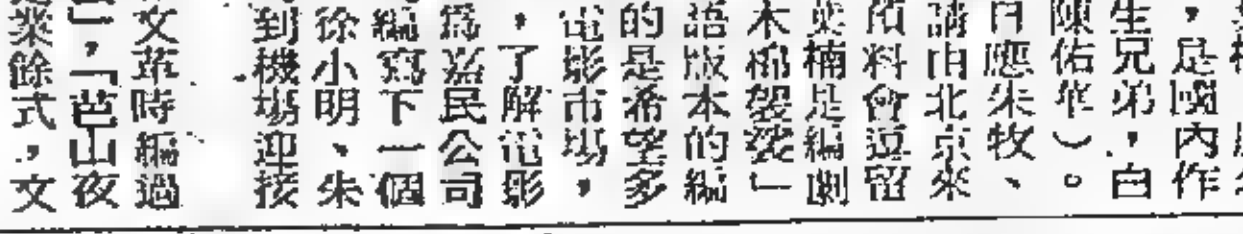 ，是國內作
生兄弟，白
陳佑華）。
日應朱牧、
請由北京來
預料會逗留
葉楠是編劇
木棉袈裟」
語版本的編
的是希望多
電影市場，
，了解電影
爲嘉民公司
編寫下一個
徐小明、朱
到機場迎接
文革時編過
」，「芭山夜
業餘式，文